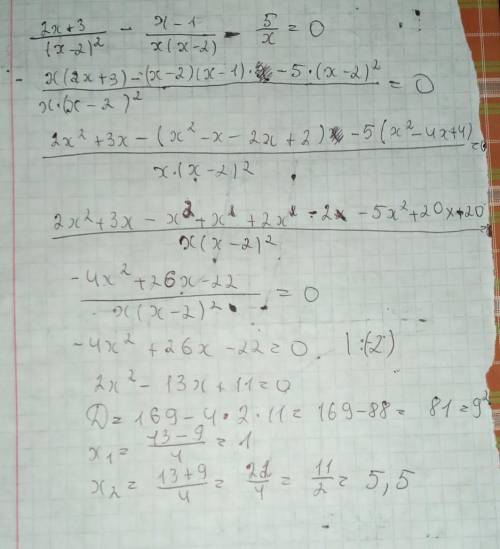 (2x+3)/(x-2)² - (x-1)/(x(x-2)) - 5/x = 0
(x(2x+3)-(x-2)(x-1)· -5·(x-2)²)/(x·(x-2)²) = 0
(2x²+3x-(x²-x-2x+2) -5(x²-4x+4))/(x·(x-2)²) =0
(2x²+3x-x²+x+2x-2-5x²+20x-20)/(x(x-2)²) =
(-4x²+26x-22)/(x(x-2)²) = 0
-4x²+26x-22=0. |:(-2)
2x²-13x+11=0
D=169-4·2·11=169-88= 81=9²
x₁= (13-9)/4 =1
x₂= (13+9)/4 = 22/4 = 11/2 = 5,5